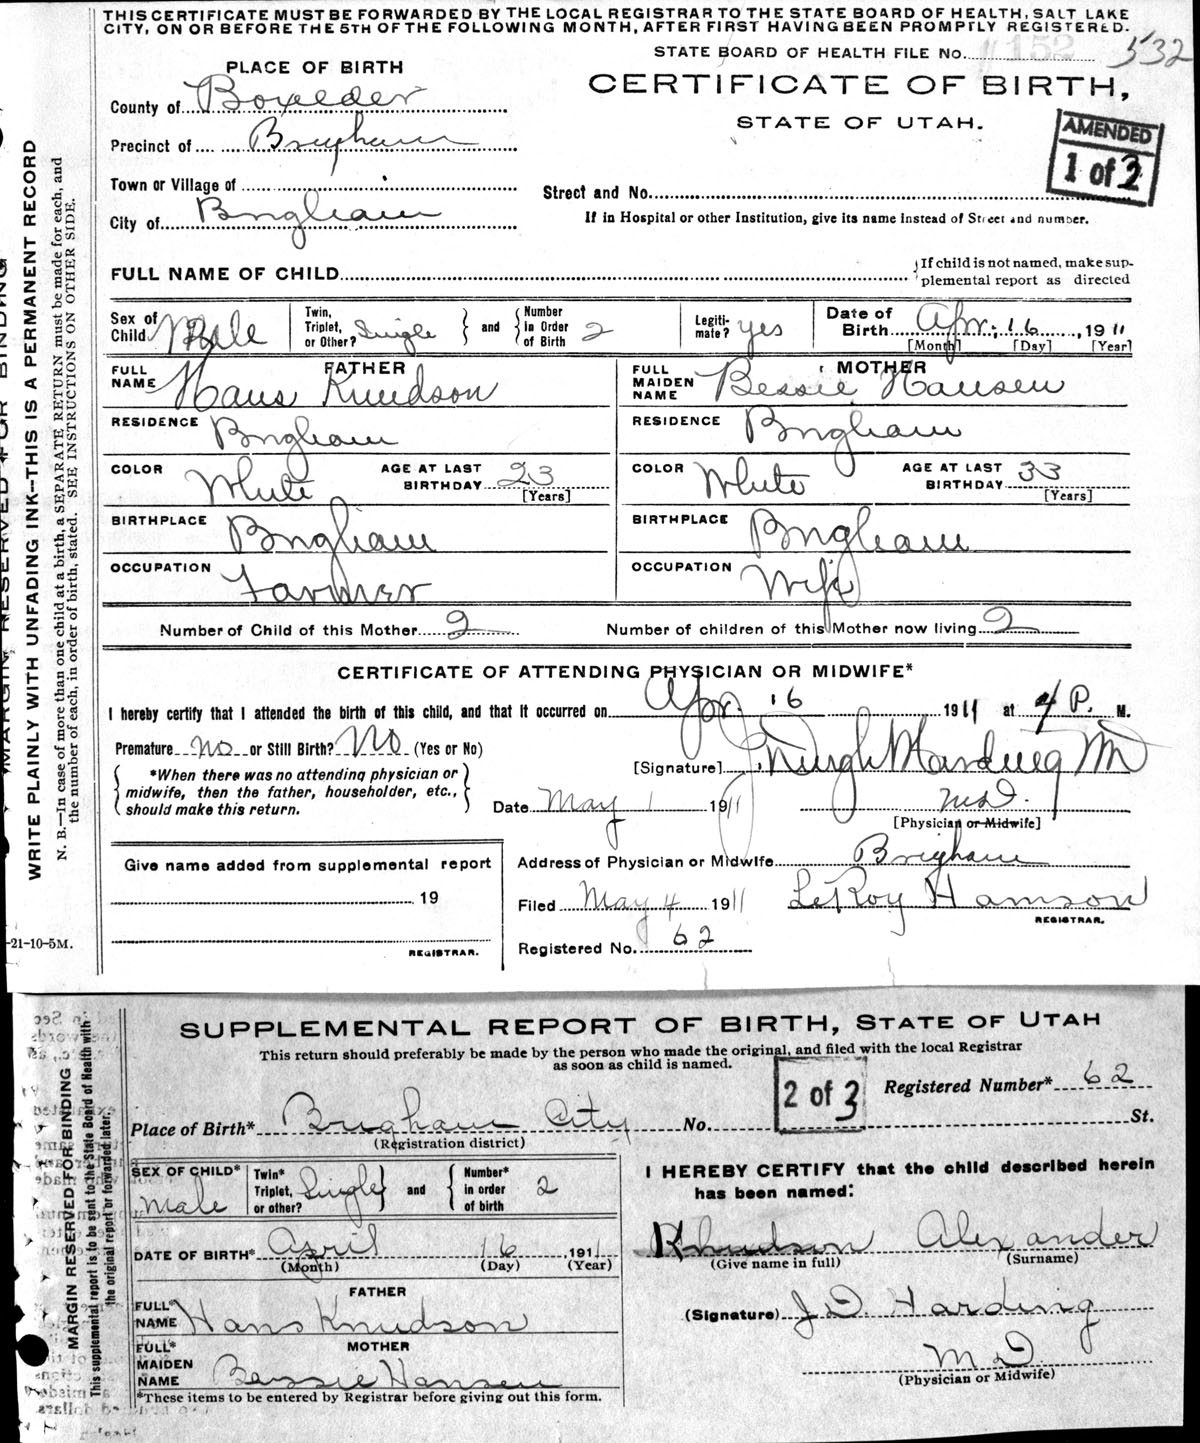 THIS CERTIFICATE MUST BE FORWARDED BY THE LOCAL REGISTRAR TO THE STATE BOARD OF HEALTH, SALT LAKE
CITY, ON OR BEFORE THE 5TH OF THE FOLLOWING MONTH, AFTER FIRST HAVING BEEN PROMPTLY REGISTERED.
STATE BOARD OF HEALTH FILE No. 152 532
PLACE OF BIRTH
CERTIFICATE OF BIRTH,
STATE OF UTAH.
AMENDED
1 of 3
County of Boxelder
Precinct of Brigham
Town or Village of
Street and No.
City of Brigham
If in Hospital or other Institution, give its name instead of Street and number.
FULL NAME OF CHILD
If child is not named, make sup-
plemental report as directed
Sex of Child Male
Twin, Triplet, or Other? Single and Number in Order of Birth 2
Legiti-mate? yes
Date of Birth Apr. 16, 1911
[Month] [Day] [Year]
FATHER
FULL NAME Hans Knudson
MOTHER
FULL MAIDEN NAME Bessie Hansen
RESIDENCE Brigham
RESIDENCE Brigham
COLOR White AGE AT LAST BIRTHDAY 23 [Years]
COLOR White AGE AT LAST BIRTHDAY 33 [Years]
BIRTHPLACE Brigham
BIRTHPLACE Brigham
OCCUPATION Farmer
OCCUPATION Wife
Number of Child of this Mother 2 Number of children of this Mother now living 2
CERTIFICATE OF ATTENDING PHYSICIAN OR MIDWIFE*
I hereby certify that I attended the birth of this child, and that it occurred on Apr. 16 1911 at 4 P. M.
Premature no or Still Birth? No (Yes or No)
*When there was no attending physician or
midwife, then the father, householder, etc.,
should make this return.
[Signature]
Date May 1 1911 M.D.
[Physician or Midwife]
Give name added from supplemental report
19
REGISTRAR.
Address of Physician or Midwife Brigham
Filed May 4 1911 LeRoy
REGISTRAR.
Registered No. 62
MARGIN RESERVED FOR BINDING
WRITE PLAINLY WITH UNFADING INK—THIS IS A PERMANENT RECORD
N. B.—In case of more than one child at a birth, a SEPARATE RETURN must be made for each, and
the number of each, in order of birth, stated. SEE INSTRUCTIONS ON OTHER SIDE.
-21-10-5M.
SUPPLEMENTAL REPORT OF BIRTH, STATE OF UTAH
This return should preferably be made by the person who made the original, and filed with the local Registrar
as soon as child is named.
2 of 3
Registered Number* 62
Place of Birth* Brigham City No. St.
(Registration district)
SEX OF CHILD* Male
Twin* Triplet, or other? Single and Number* in order of birth 2
DATE OF BIRTH* April 16 1911
(Month) (Day) (Year)
FATHER
FULL* NAME Hans Knudson
MOTHER
FULL* MAIDEN NAME Bessie Hansen
*These items to be entered by Registrar before giving out this form.
I HEREBY CERTIFY that the child described herein
has been named:
Knudson Alexander
(Give name in full) (Surname)
(Signature) J D Harding
M D
(Physician or Midwife)
MARGIN RESERVED FOR BINDING
This supplemental report is to be sent to the State Board of Health with
the original report or forwarded later.